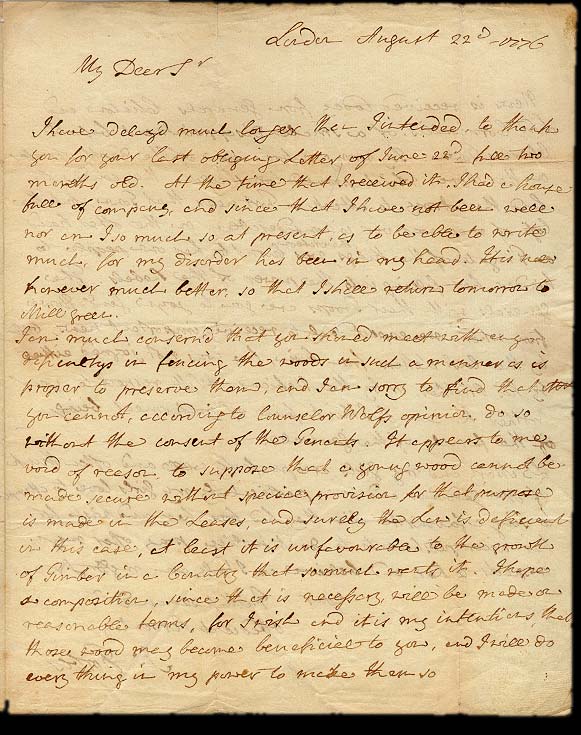 London August 22d 1776
My Dear Sr
I have delayd much longer then I intended, to thank
you for your last obliging Letter of June 22d full two
months old. At the time that I received it, I had a house
full of company, and since that I have not been well
nor am I so much so at present, as to be able to write
much, for my disorder has been in my head. It is now
however much better, so that I shall return tomorrow to
Mill green.
I am much consernd that you should meet with any
dificultys in fencing the woods in such a manner as is
proper to preserve them, and I am sorry to find that
you cannot, according to Counselor Wolfs opinion, do so
without the consent of the Tenants. It appears to me
void of reason to suppose that a young wood cannot be
made secure without special provision for that purpose
is made in the Leases, and surely the Law is deficient
in this case, at least it is unfavourable to the growth
of Timber in a Country that so much wants it. I hope
a composition, since that is necessary, will be made on
reasonable terms, for I wish and it is my intentions, that
those wood may become beneficial to you, and I will do
every thing in my power to make them so